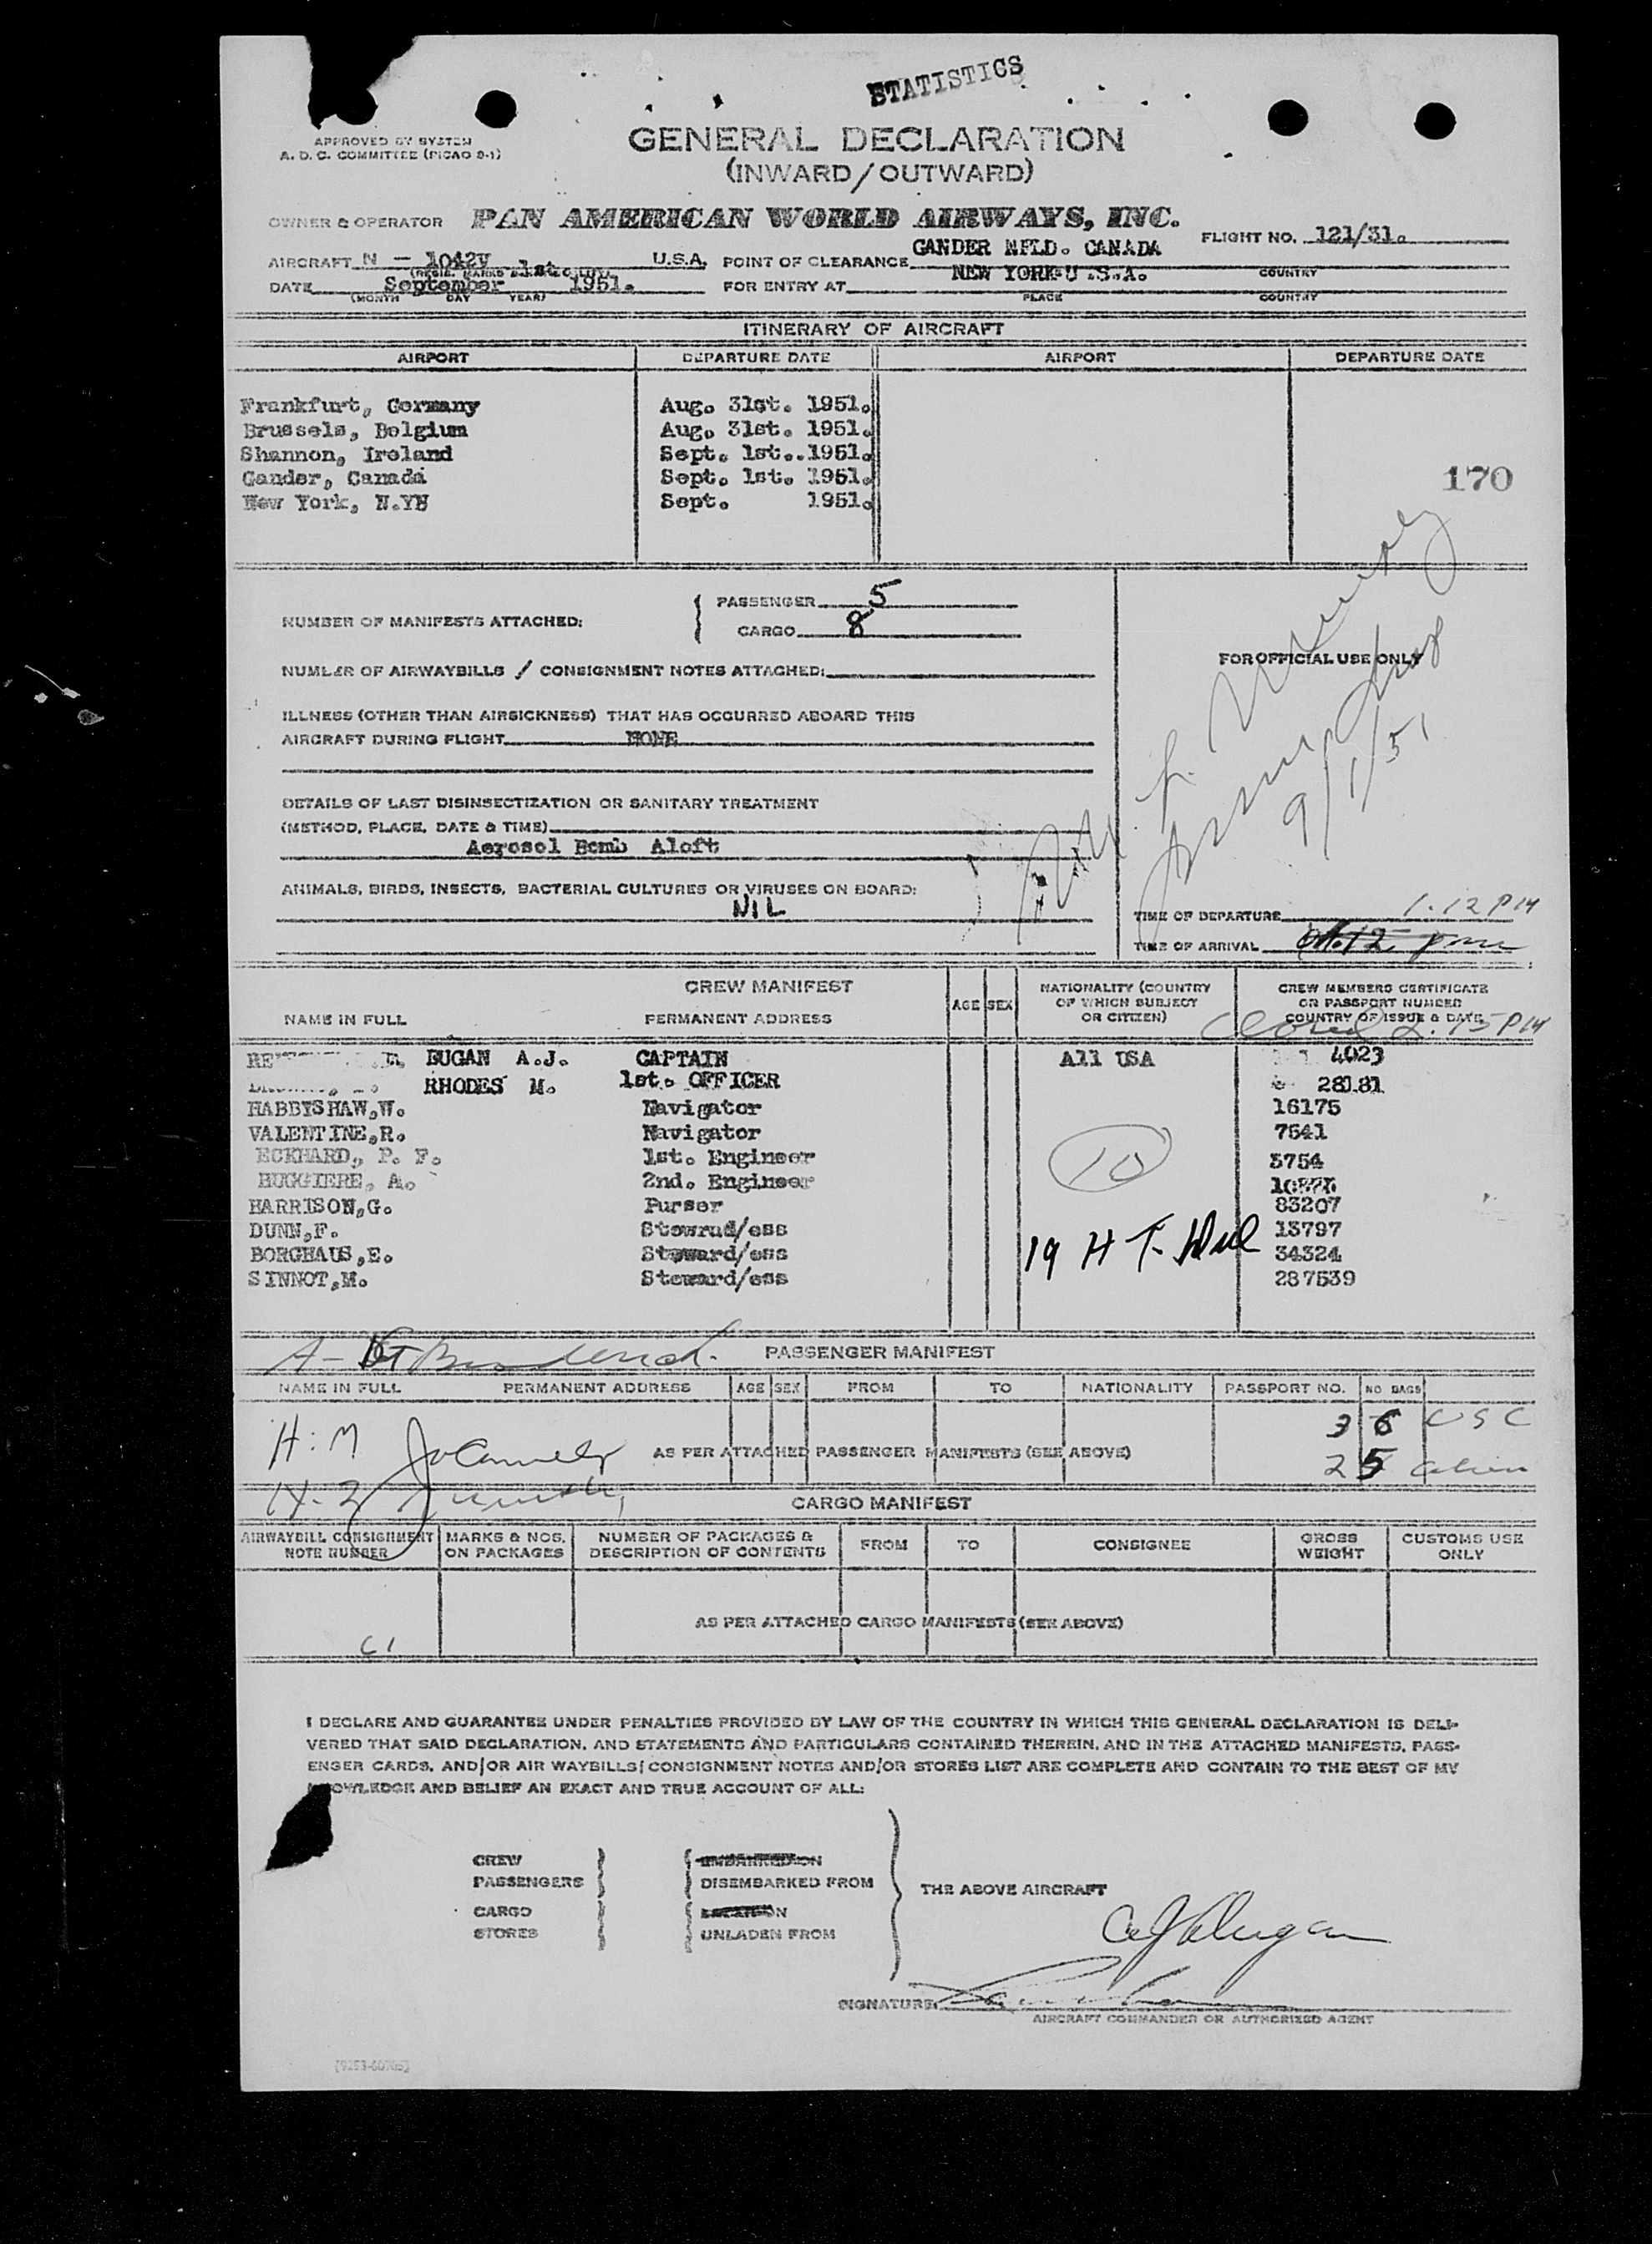 STATISTICS
APPROVED BY SYSTEM
A. D. C. COMMITTEE (PICAO 9-1)
GENERAL DECLARATION
(INWARD/OUTWARD)
OWNER & OPERATOR PAN AMERICAN WORLD AIRWAYS, INC.
FLIGHT NO. 121/31.
AIRCRAFT N - 1042V U.S.A. POINT OF CLEARANCE GANDER NFLD. CANADA
DATE September 1st. 1951. FOR ENTRY AT NEW YORK U.S.A.
(MONTH DAY YEAR) PLACE COUNTRY
ITINERARY OF AIRCRAFT
AIRPORT DEPARTURE DATE AIRPORT DEPARTURE DATE
Frankfurt, Germany Aug. 31st. 1951.
Brussels, Belgium Aug. 31st. 1951.
Shannon, Ireland Sept. 1st..1951.
Gander, Canada Sept. 1st. 1951.
New York, N.YN Sept. 1951.
170
NUMBER OF MANIFESTS ATTACHED: PASSENGER 5
CARGO 8
FOR OFFICIAL USE ONLY
NUMBER OF AIRWAYBILLS / CONSIGNMENT NOTES ATTACHED:
ILLNESS (OTHER THAN AIRSICKNESS) THAT HAS OCCURRED ABOARD THIS
AIRCRAFT DURING FLIGHT NONE
9/1/51
DETAILS OF LAST DISINSECTIZATION OR SANITARY TREATMENT
(METHOD, PLACE, DATE & TIME)
Aerosol Bomb Aloft
ANIMALS, BIRDS, INSECTS, BACTERIAL CULTURES OR VIRUSES ON BOARD:
NIL
TIME OF DEPARTURE 1.12 PM
TIME OF ARRIVAL
CREW MANIFEST
NAME IN FULL PERMANENT ADDRESS AGE SEX NATIONALITY (COUNTRY OF WHICH SUBJECT OR CITIZEN) CREW MEMBERS CERTIFICATE OR PASSPORT NUMBER COUNTRY OF ISSUE & DATE
2.15 PM
DUGAN A.J. CAPTAIN All USA 4023
RHODES M. 1st. OFFICER 28181
HABBYSHAW,W. Navigator 16175
VALENTINE,R. Navigator 7541
ECKHARD, P. F. 1st. Engineer 3754
RUGGIERE, A. 2nd. Engineer
HARRISON,G. Purser 83207
DUNN,F. Stewrad/ess 13797
BORGHAUS,E. Steward/ess 34324
SINNOT,M. Steward/ess 287539
10
19 H T.
PASSENGER MANIFEST
NAME IN FULL PERMANENT ADDRESS AGE SEX FROM TO NATIONALITY PASSPORT NO. NO BAGS
36 USC
AS PER ATTACHED PASSENGER MANIFESTS (SEE ABOVE)
25 alien
CARGO MANIFEST
AIRWAYBILL CONSIGNMENT NOTE NUMBER MARKS & NOS. ON PACKAGES NUMBER OF PACKAGES & DESCRIPTION OF CONTENTS FROM TO CONSIGNEE GROSS WEIGHT CUSTOMS USE ONLY
AS PER ATTACHED CARGO MANIFESTS (SEE ABOVE)
61
I DECLARE AND GUARANTEE UNDER PENALTIES PROVIDED BY LAW OF THE COUNTRY IN WHICH THIS GENERAL DECLARATION IS DELI-
VERED THAT SAID DECLARATION, AND STATEMENTS AND PARTICULARS CONTAINED THEREIN, AND IN THE ATTACHED MANIFESTS, PASS-
ENGER CARDS, AND/OR AIR WAYBILLS/CONSIGNMENT NOTES AND/OR STORES LIST ARE COMPLETE AND CONTAIN TO THE BEST OF MY
KNOWLEDGE AND BELIEF AN EXACT AND TRUE ACCOUNT OF ALL:
CREW EMBARKED ON
PASSENGERS DISEMBARKED FROM
THE ABOVE AIRCRAFT
CARGO
STORES UNLADEN FROM
A J Dugan
SIGNATURE:
AIRCRAFT COMMANDER OR AUTHORIZED AGENT